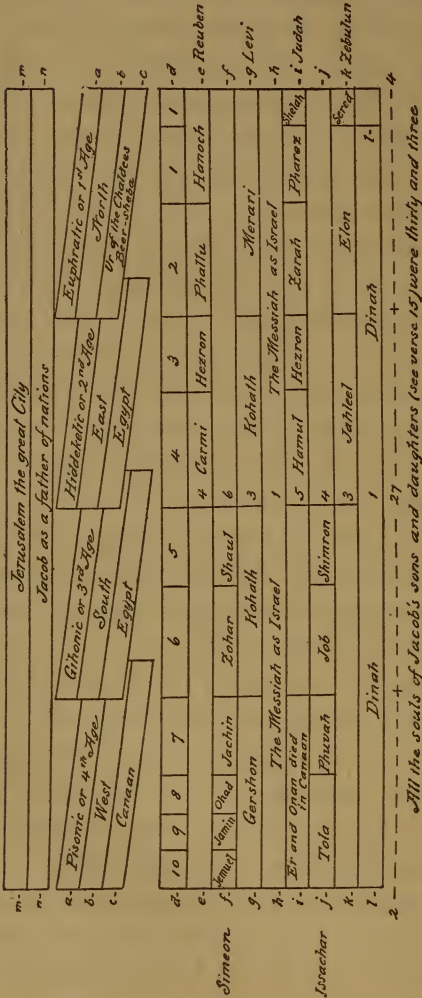 m- Jerusalem the great City -m
n- Jacob as a father of nations -n
a- Pisonic or 4th Age Gihonic or 3rd Age Hiddekelic or 2nd Age Euphratic or 1st Age -a
b- West South East North -b
c- Canaan Egypt Egypt Ur of the Chaldees -c
Beer-sheba
d- 10 9 8 7 6 5 4 3 2 1 1 -d
e- 4 Carmi Hezron Phallu Hanoch -e Reuben
Simeon f- Jemuel Jamin Ohad Jachin Zohar Shaul 6 -f
g- Gershon Kohath 3 Kohath Merari -g Levi
h- The Messiah as Israel 1 The Messiah as Israel -h
i- Er and Onan died in Canaan 5 Hamul Hezron Zarah Pharez Shelah -i Judah
Issachar j- Tola Phuvah Job Shimron 4 -j
k- 3 Jahleel Elon Sered -k Zebulun
l- Dinah 1 Dinah l-
2 - - - - - - - + - - - - - - - 27 - - - - - - - + - - - - - - - 4
All the souls of Jacob's sons and daughters (see verse 15) were thirty and three